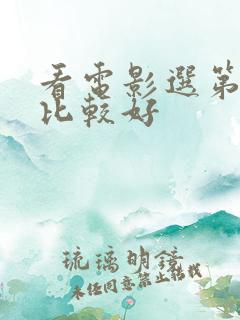 看電影選第
比較好
琉璃明鏡
未经同意禁止转载